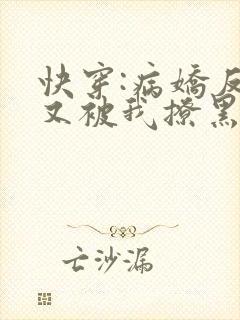 快穿:病娇反
又被我撩黑
亡沙漏